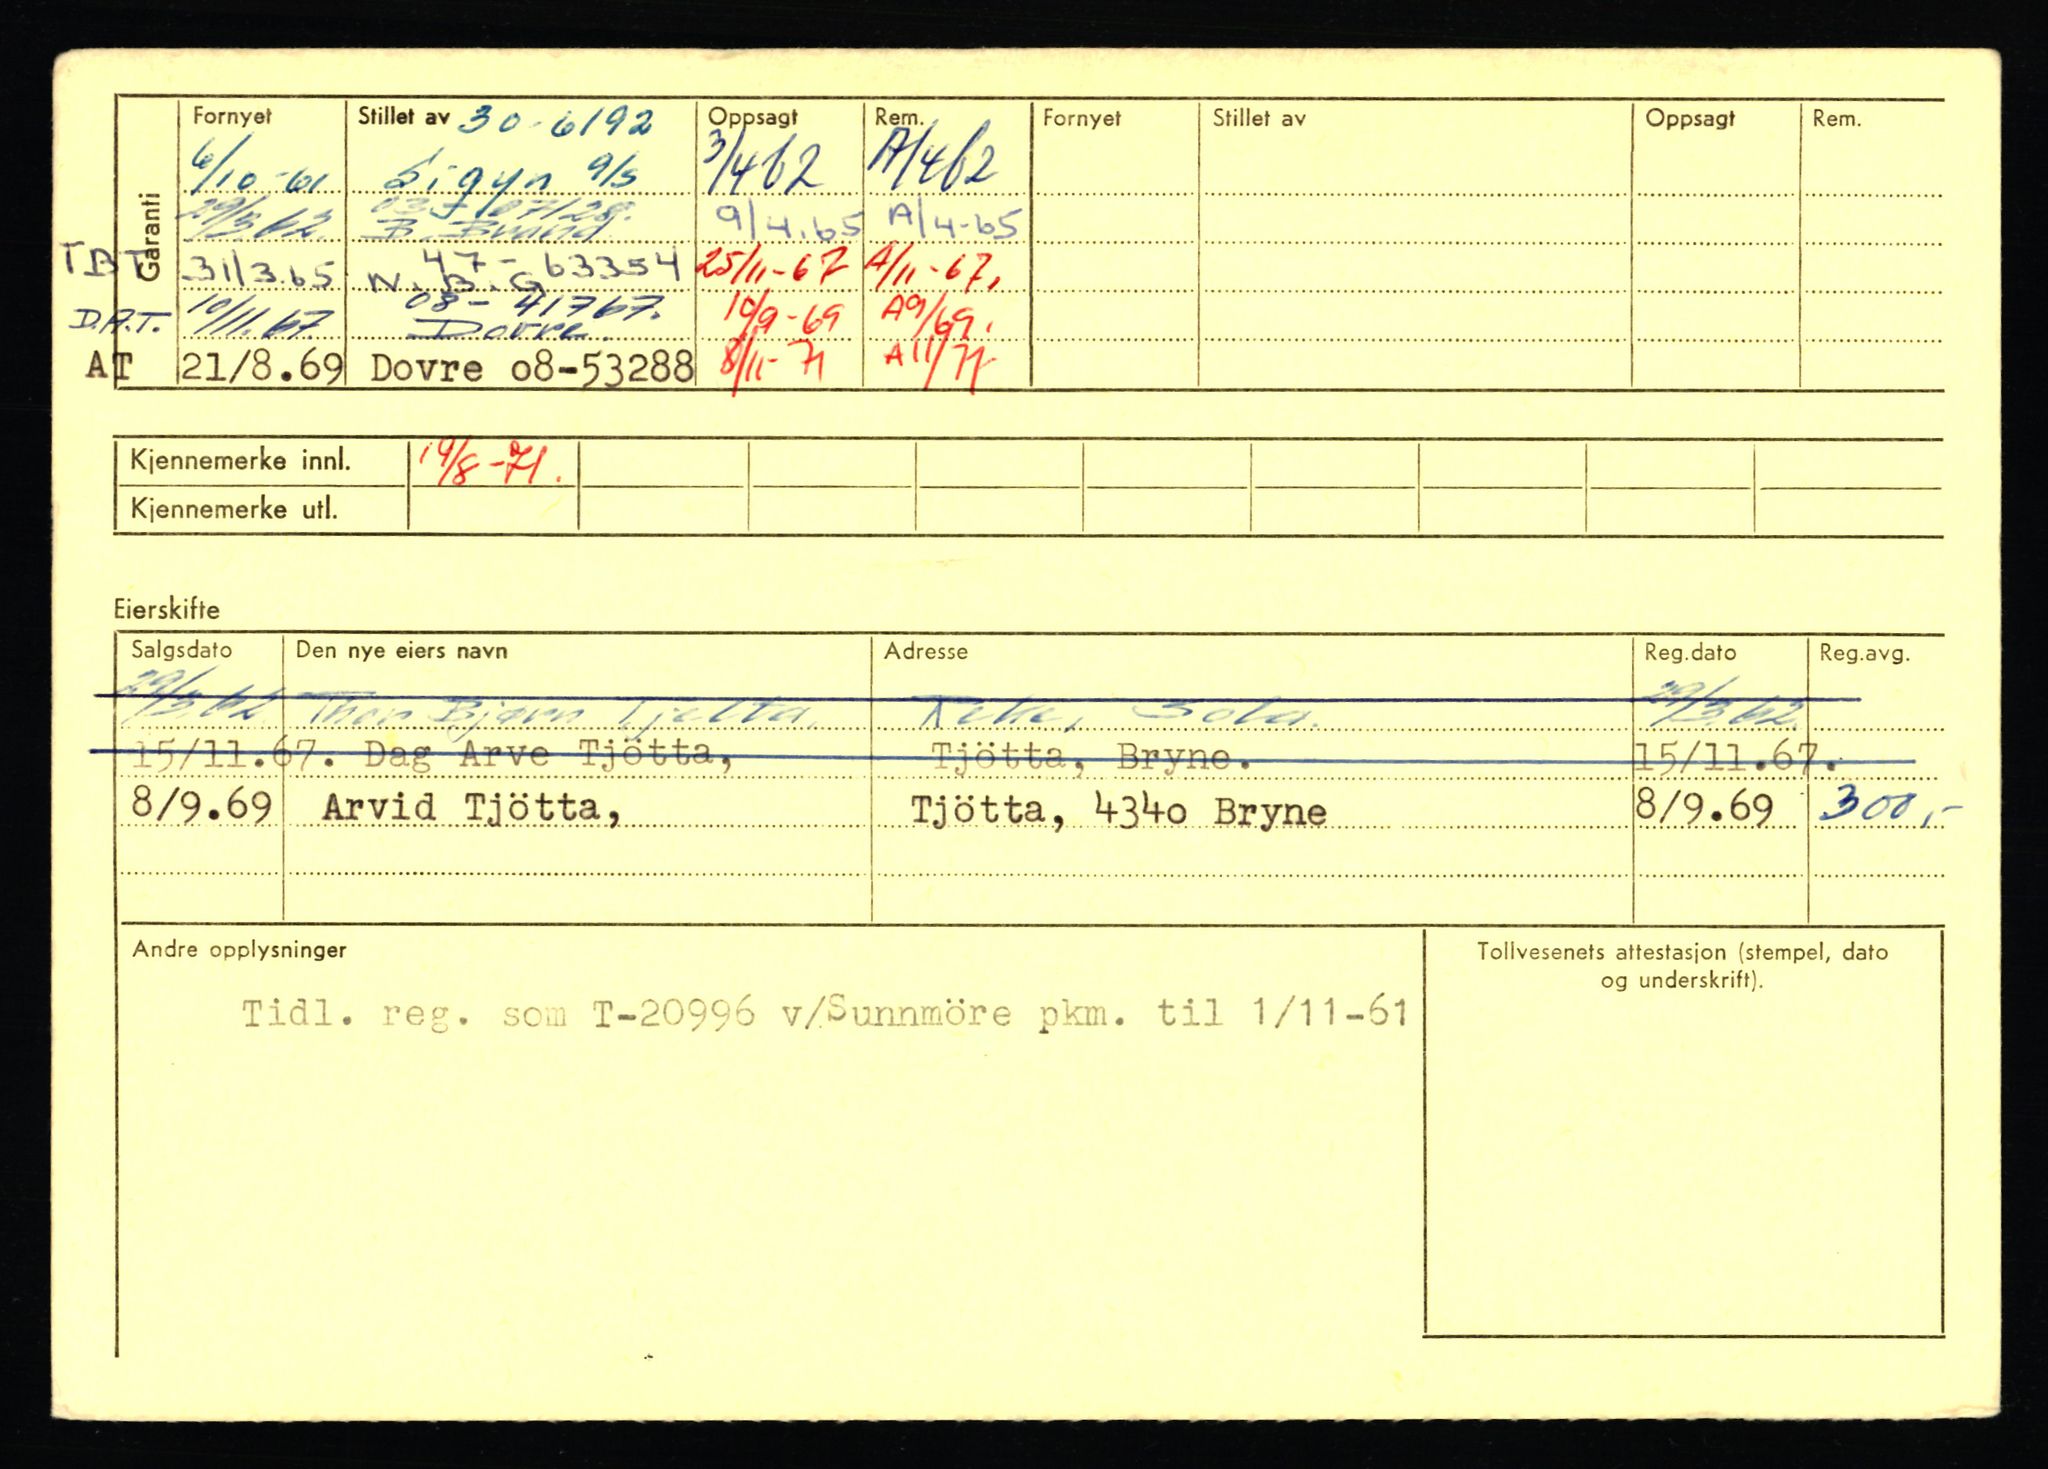 Garanti
Fornyet Stillet av 30-6192 Oppsagt Rem. Fornyet Stillet av Oppsagt Rem.
6/10-61 Sigyn 9/5 3/4 62 A/4 62
29/3.62. B. Brand 9/4.65 A/4-65
TBT 31/3.65 47-63354 N.B.G 25/11-67 A/11-67.
D.A.T. 10/11.67. 08-41767. Dovre. 10/9-69 A9/69.
AT 21/8.69 Dovre o8-53288 8/11-71 A11/71
Kjennemerke innl. 19/8-71.
Kjennemerke utl.
Eierskifte
Salgsdato Den nye eiers navn Adresse Reg.dato Reg.avg.
29/3.62 Thor Bjørn Tjelta, Sola. 29/3.62.
15/11.67. Dag Arve Tjötta, Tjötta, Bryne. 15/11.67.
8/9.69 Arvid Tjötta, Tjötta, 434o Bryne 8/9.69 300,-
Andre opplysninger
Tidl. reg. som T-20996 v/Sunnmöre pkm. til 1/11-61
Tollvesenets attestasjon (stempel, dato
og underskrift).